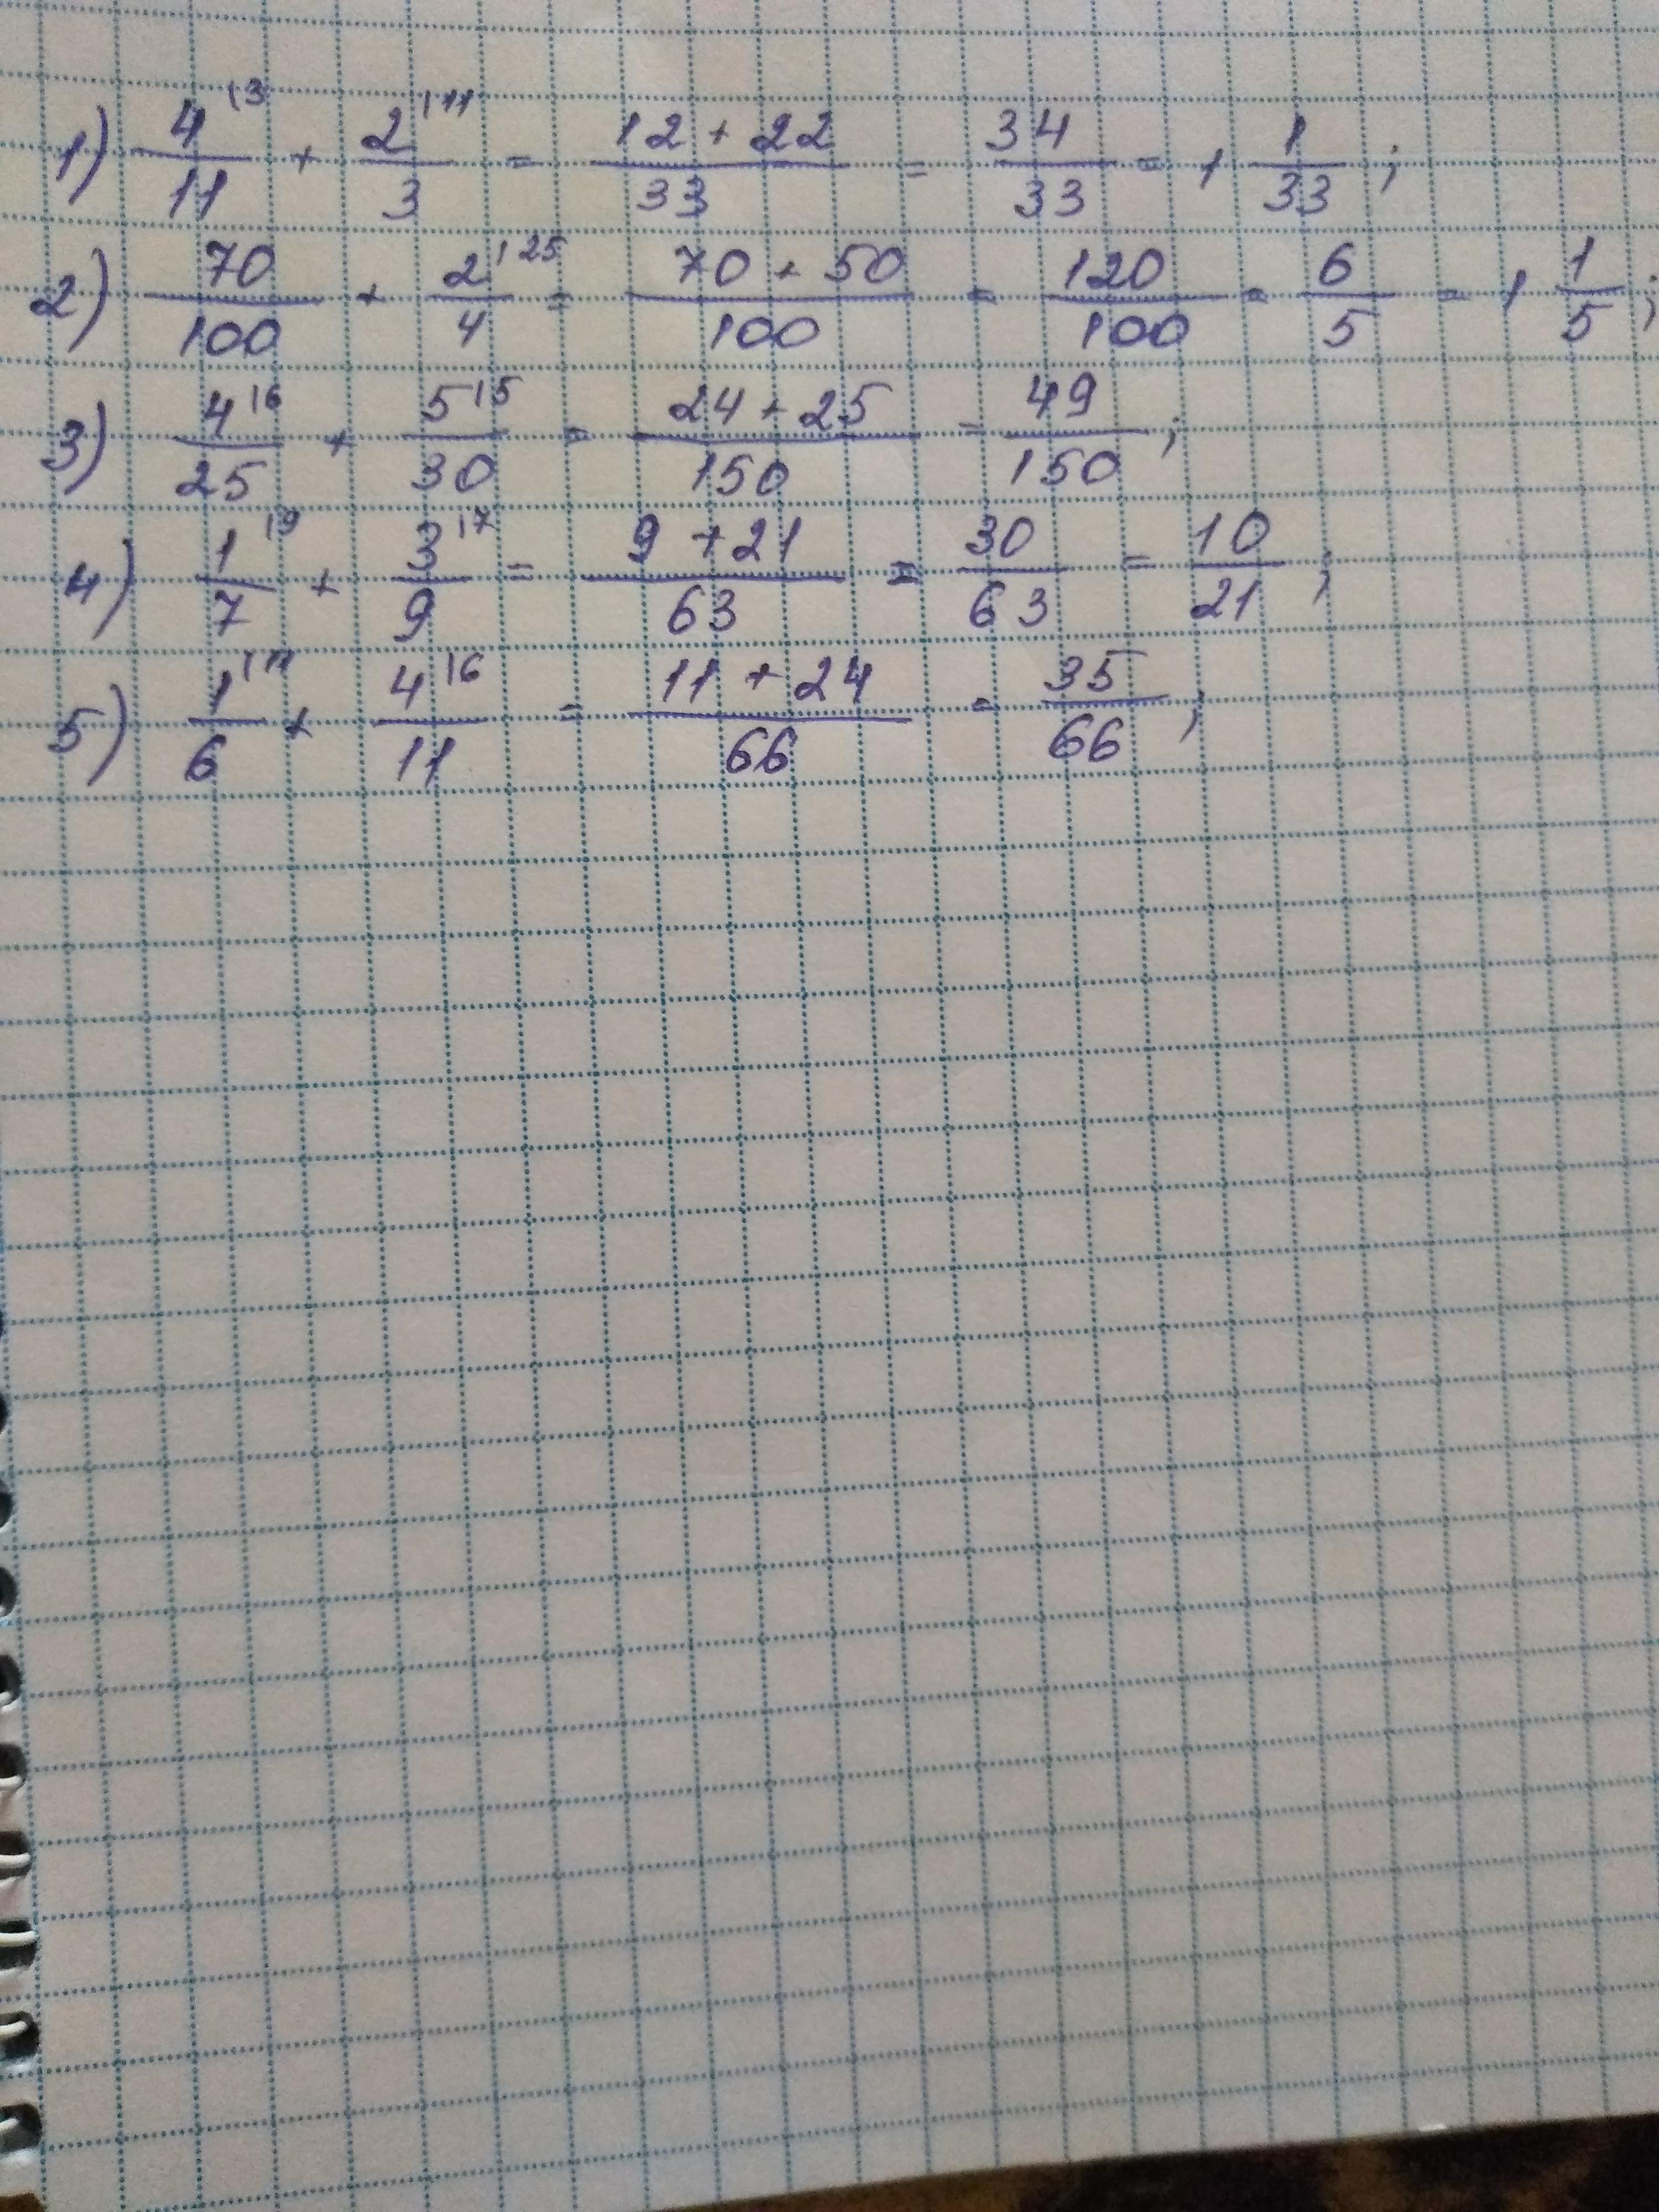 1) 4\3/11 + 2\11/3 = 12 + 22/33 = 34/33 = 1 1/33 ;
2) 70/100 + 2\25/4 = 70 + 50/100 = 120/100 = 6/5 = 1 1/5 ;
3) 4\6/25 + 5\5/30 = 24 + 25/150 = 49/150 ;
4) 1\9/7 + 3\7/9 = 9 + 21/63 = 30/63 = 10/21 ;
5) 1\11/6 + 4\6/11 = 11 + 24/66 = 35/66 ;